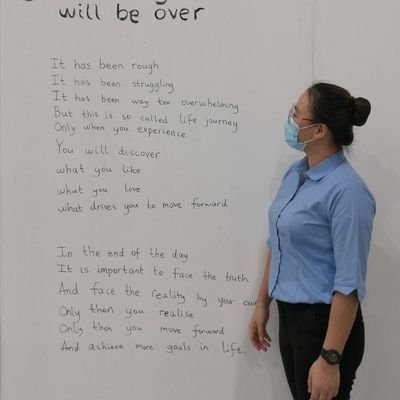 will be over
It has been rough
It has been struggling
It has been way too overwhelming
But this is so called life journey
Only when you experience
You will discover
what you like
what you love
what drives you to move forward
In the end of the day
It is important to face the truth
And face the reality by your own
Only then you realise
Only then you move forward
And achieve more goals in life.